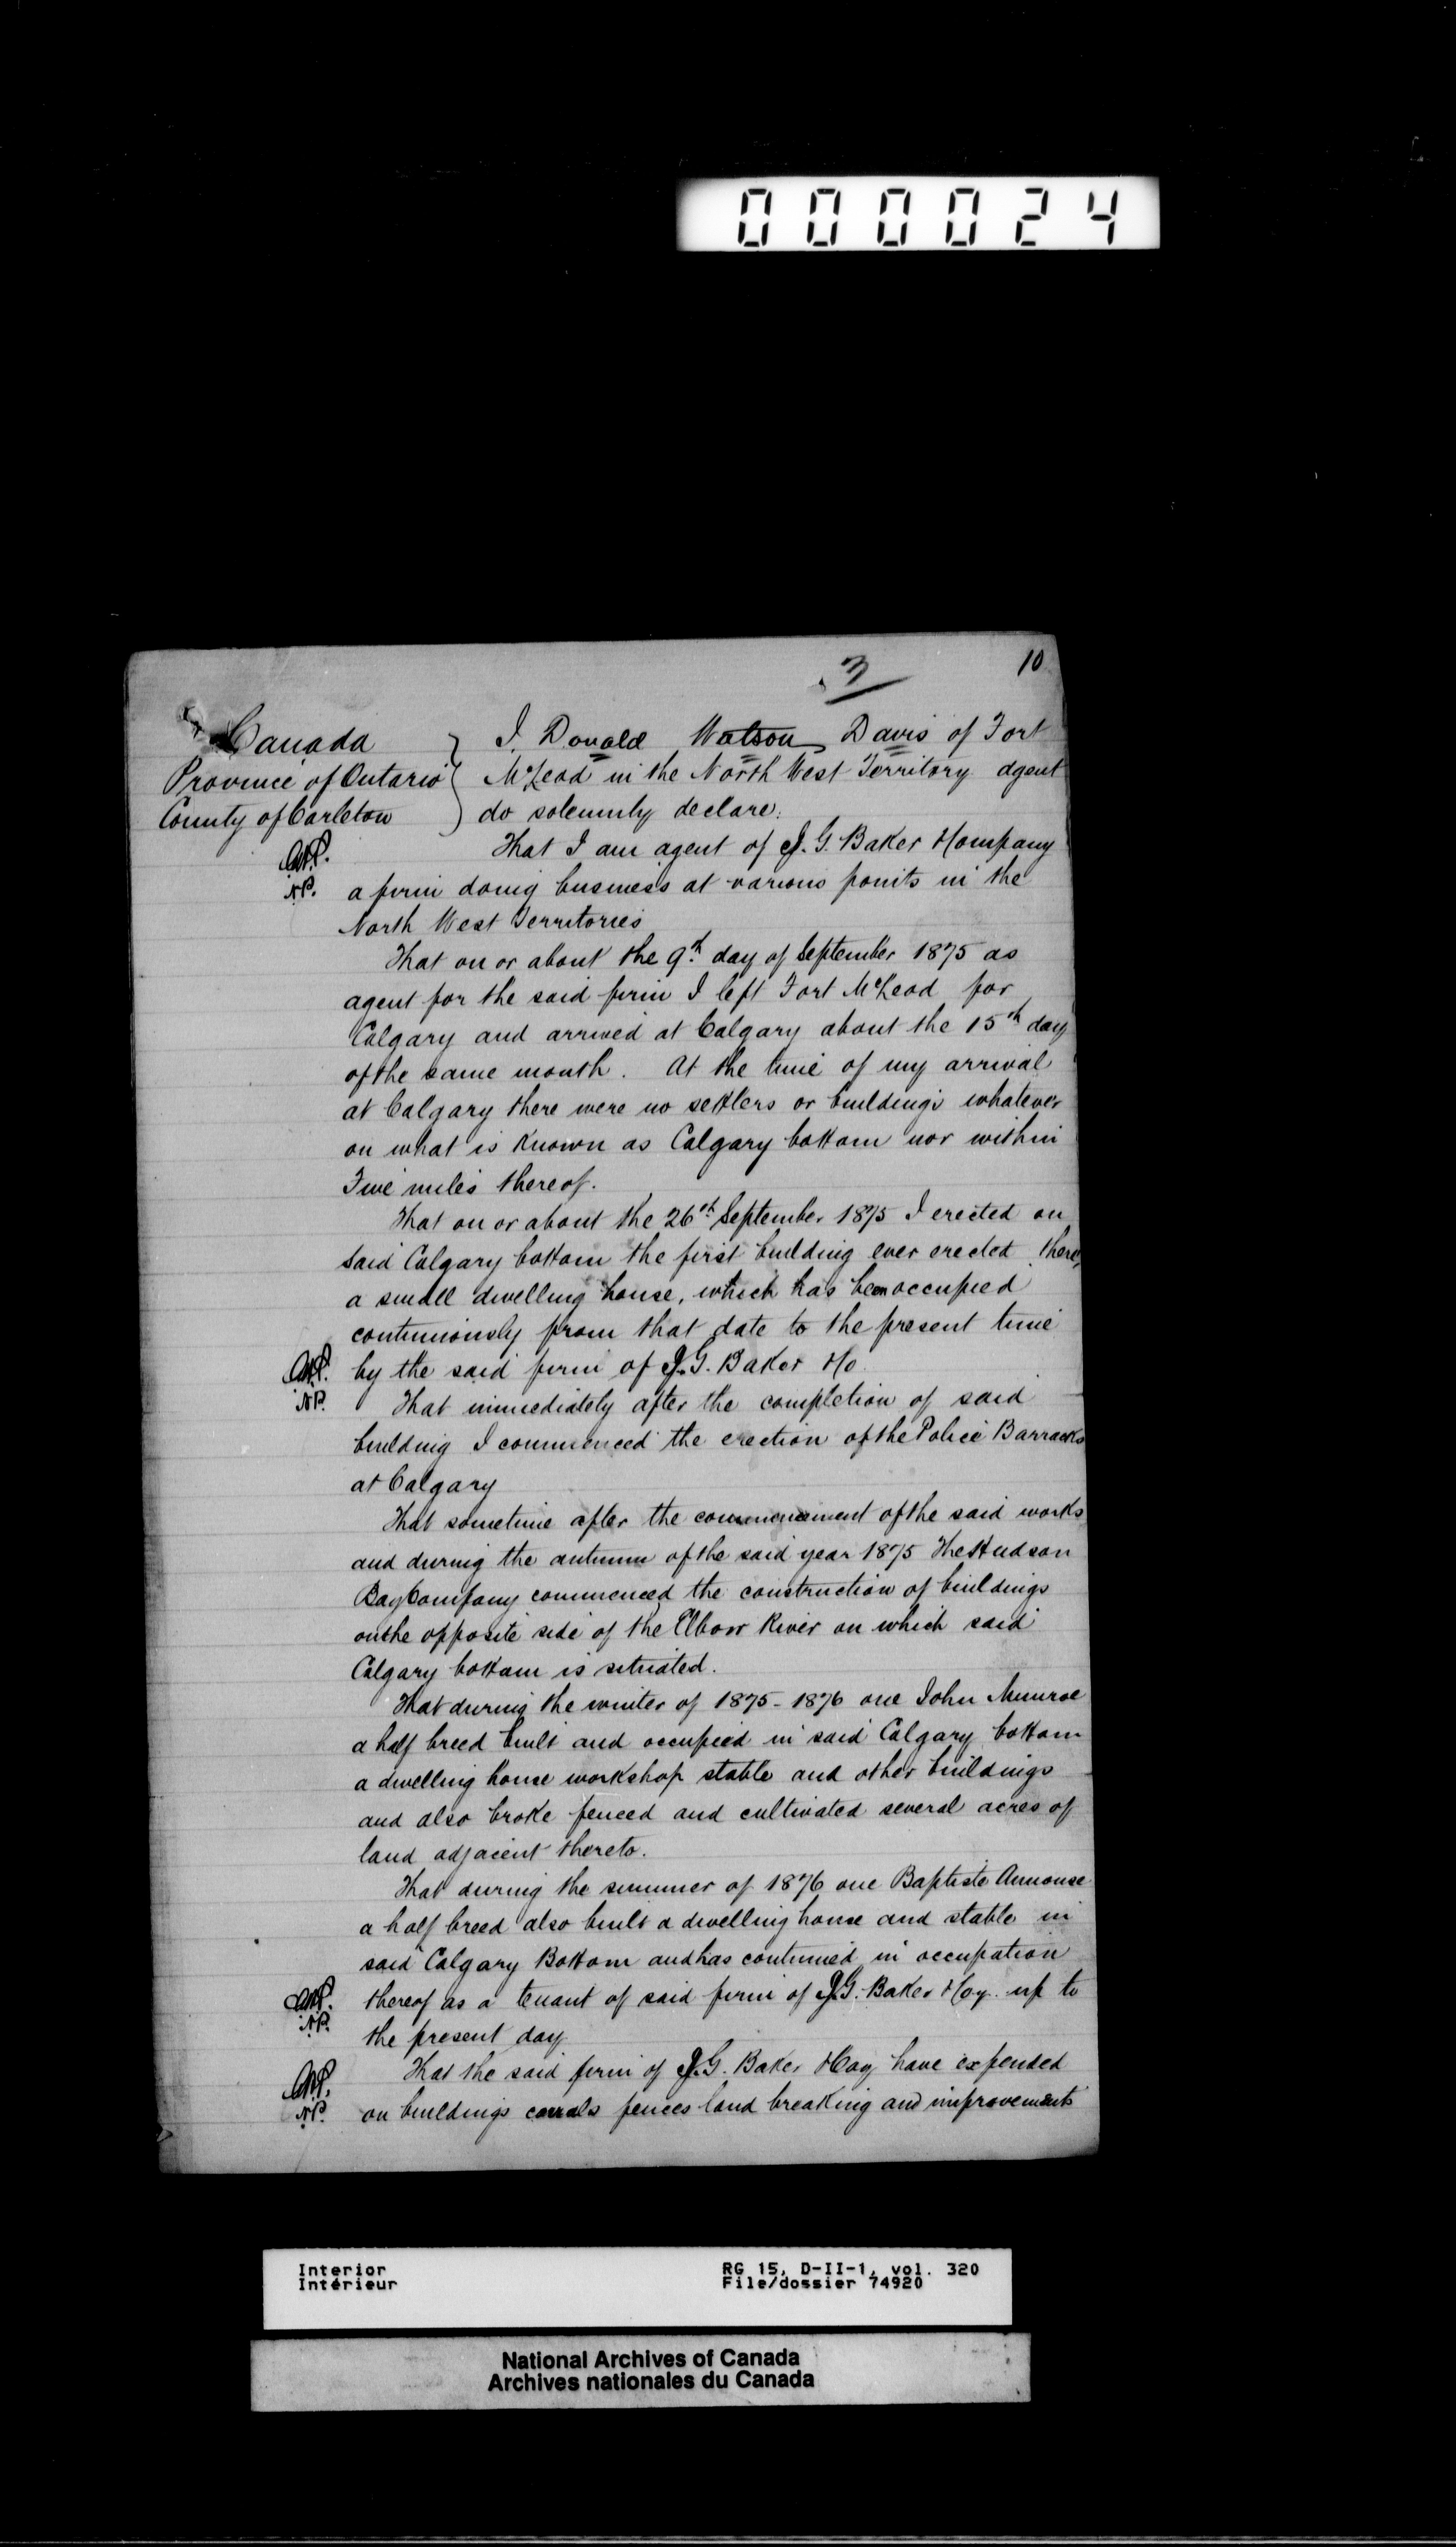 000024
3
10
Canada
Province of Ontario
County of Carleton
I, Donald Watson Davis of Fort
McLeod in the North West Territory agent
do solemnly declare:
That I am agent of J. G. Baker & Company
N.P. a firm doing business at various points in the
North West Territories
That on or about the 9th day of September 1875 as
agent for the said firm I left Fort McLeod for
Calgary and arrived at Calgary about the 15th day
of the same month. At the time of my arrival
at Calgary there were no settlers or buildings whatever
on what is known as Calgary bottom nor within
Five miles thereof.
That on or about the 26th September 1875 I erected on
said Calgary bottom the first building ever erected there,
a small dwelling house, which has been occupied
continuously from that date to the present time
by the said firm of J. G. Baker & Co.
N.P. That immediately after the completion of said
building I commenced the erection of the Police Barracks
at Calgary
That sometime after the commencement of the said works
and during the autumn of the said year 1875 The Hudson
Bay Company commenced the construction of buildings
on the opposite side of the Elbow River on which said
Calgary bottom is situated.
That during the winter of 1875-1876 one John Munroe
a half breed built and occupied in said Calgary bottom
a dwelling house workshop stable and other buildings
and also broke fenced and cultivated several acres of
land adjacent thereto.
That during the summer of 1876 one Baptiste Annouse
a half breed also built a dwelling house and stable in
said Calgary Bottom and has continued in occupation
thereof as a tenant of said firm of J. G. Baker & Coy. up to
N.P. the present day
That the said firm of J. G. Baker & Coy have expended
N.P. on buildings corrals fences land breaking and improvements
Interior
Intérieur
RG 15, D-II-1, vol. 320
File/dossier 74920
National Archives of Canada
Archives nationales du Canada